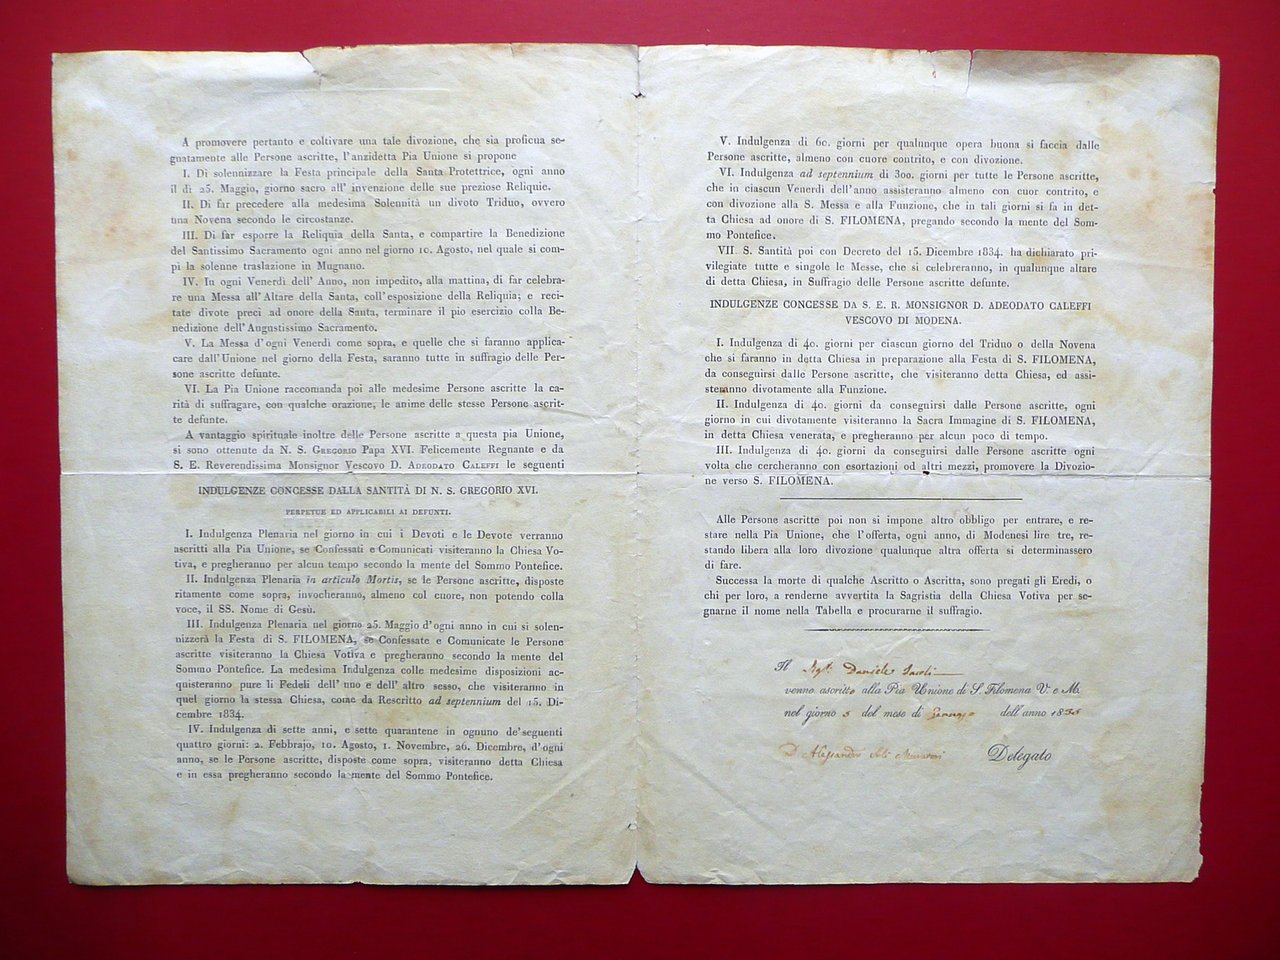 A promovere pertanto e coltivare una tale divozione, che sia proficua se-
gnatamente alle Persone ascritte, l'anzidetta Pia Unione si propone
I. Di solennizzare la Festa principale della Santa Protettrice, ogni anno
il dì 25. Maggio, giorno sacro all' invenzione delle sue preziose Reliquie.
II. Di far precedere alla medesima Solennità un divoto Triduo, ovvero
una Novena secondo le circostanze.
III. Di far esporre la Reliquia della Santa, e compartire la Benedizione
del Santissimo Sacramento ogni anno nel giorno 10. Agosto, nel quale si com-
pì la solenne traslazione in Mugnano.
IV. In ogni Venerdì dell' Anno, non impedito, alla mattina, di far celebra-
re una Messa all'Altare della Santa, coll'esposizione della Reliquia; e reci-
tate divote preci ad onore della Santa, terminare il pio esercizio colla Be-
nedizione dell'Augustissimo Sacramento.
V. La Messa d'ogni Venerdì come sopra, e quelle che si faranno applica-
care dall'Unione nel giorno della Festa, saranno tutte in suffragio delle Per-
sone ascritte defunte.
VI. La Pia Unione raccomanda poi alle medesime Persone ascritte la ca-
rità di suffragare, con qualche orazione, le anime delle stesse Persone ascrit-
te defunte.
A vantaggio spirituale inoltre delle Persone ascritte a questa pia Unione,
si sono ottenute da N. S. GREGORIO Papa XVI. Felicemente Regnante e da
S. E. Reverendissima Monsignor Vescovo D. ADEODATO CALEFFI le seguenti
INDULGENZE CONCESSE DALLA SANTITÀ DI N. S. GREGORIO XVI.
PERPETUE ED APPLICABILI AI DEFUNTI.
I. Indulgenza Plenaria nel giorno in cui i Devoti e le Devote verranno
ascritti alla Pia Unione, se Confessati e Comunicati visiteranno la Chiesa Vo-
tiva, e pregheranno per alcun tempo secondo la mente del Sommo Pontefice.
II. Indulgenza Plenaria in articulo Mortis, se le Persone ascritte, disposte
ritamente come sopra, invocheranno, almeno col cuore, non potendo colla
voce, il SS. Nome di Gesù.
III. Indulgenza Plenaria nel giorno 25. Maggio d'ogni anno in cui si solen-
nizzerà la Festa di S. FILOMENA, se Confessate e Comunicate le Persone
ascritte visiteranno la Chiesa Votiva e pregheranno secondo la mente del
Sommo Pontefice. La medesima Indulgenza colle medesime disposizioni ac-
quisteranno pure li Fedeli dell' uno e dell' altro sesso, che visiteranno in
quel giorno la stessa Chiesa, come da Rescritto ad septennium del 15. Di-
cembre 1834.
IV. Indulgenza di sette anni, e sette quarantene in ognuno de'seguenti
quattro giorni: 2. Febbrajo, 10. Agosto, 1. Novembre, 26. Dicembre, d'ogni
anno, se le Persone ascritte, disposte come sopra, visiteranno detta Chiesa
e in essa pregheranno secondo la mente del Sommo Pontefice.
V. Indulgenza di 60. giorni per qualunque opera buona si faccia dalle
Persone ascritte, almeno con cuore contrito, e con divozione.
VI. Indulgenza ad septennium di 300. giorni per tutte le Persone ascritte,
che in ciascun Venerdì dell'anno assisteranno almeno con cuor contrito, e
con divozione alla S. Messa e alla Funzione, che in tali giorni si fa in det-
ta Chiesa ad onore di S. FILOMENA, pregando secondo la mente del Som-
mo Pontefice.
VII. S. Santità poi con Decreto del 15. Dicembre 1834. ha dichiarato pri-
vilegiate tutte e singole le Messe, che si celebreranno, in qualunque altare
di detta Chiesa, in Suffragio delle Persone ascritte defunte.
INDULGENZE CONCESSE DA S. E. R. MONSIGNOR D. ADEODATO CALEFFI
VESCOVO DI MODENA.
I. Indulgenza di 40. giorni per ciascun giorno del Triduo o della Novena
che si faranno in detta Chiesa in preparazione alla Festa di S. FILOMENA,
da conseguirsi dalle Persone ascritte, che visiteranno detta Chiesa, ed assi-
steranno divotamente alla Funzione.
II. Indulgenza di 40. giorni da conseguirsi dalle Persone ascritte, ogni
giorno in cui divotamente visiteranno la Sacra Immagine di S. FILOMENA,
in detta Chiesa venerata, e pregheranno per alcun poco di tempo.
III. Indulgenza di 40. giorni da conseguirsi dalle Persone ascritte ogni
volta che cercheranno con esortazioni od altri mezzi, promovere la Divozio-
ne verso S. FILOMENA.
Alle Persone ascritte poi non si impone altro obbligo per entrare, e re-
stare nella Pia Unione, che l'offerta, ogni anno, di Modenesi lire tre, re-
stando libera alla loro divozione qualunque altra offerta si determinassero
di fare.
Successa la morte di qualche Ascritto o Ascritta, sono pregati gli Eredi, o
chi per loro, a renderne avvertita la Sagristia della Chiesa Votiva per se-
gnarne il nome nella Tabella e procurarne il suffragio.
Il Sigr. Daniele
venne ascritto alla Pia Unione di S. Filomena V. e M.
nel giorno 5 del mese di dell'anno 1835
D. Alessandro Delegato